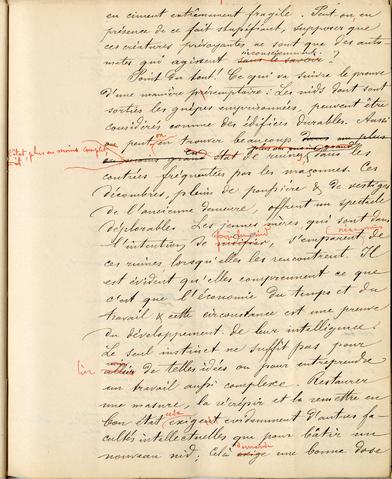 en ciment extrêmement fragile. Peut-on, en
présence de ce fait stupéfiant, supposer que
ces créatures prévoyantes ne sont que des auto-
mates qui agissent inconsciemment sans le savoir?
Point du tout! Ce qui va suivre le prouve
d'une manière péremptoire: Les nids dont sont
sorties les guêpes emprisonnées, peuvent être
considérés comme des édifices durables. Aussi
peut-on en trouver beaucoup dans un plus
ou moins grand état de ruine, dans les
contrées fréquentées par les maçonnes. Ces
décombres, pleins de poussière & de vestiges
de l'ancienne demeure, offrent un spectacle
déplorable. Les jeunes mères, qui sont dans
l'intention de s'emparent de
ces ruines, lorsqu'elles les rencontrent. Il
est évident qu'elles comprennent ce que
c'est que l'économie du temps et du
travail & cette circonstance est une preuve
du développement de leur intelligence.
Le seul instinct ne suffit pas pour
lier de telles idées ou pour entreprendre
un travail aussi complexe. Restaurer
une masure, la récrépir et la remettre en
bon état, cela exige évidemment d'autres fa-
cultés intellectuelles que pour bâtir un
nouveau nid; Celà demande exige une bonne dose